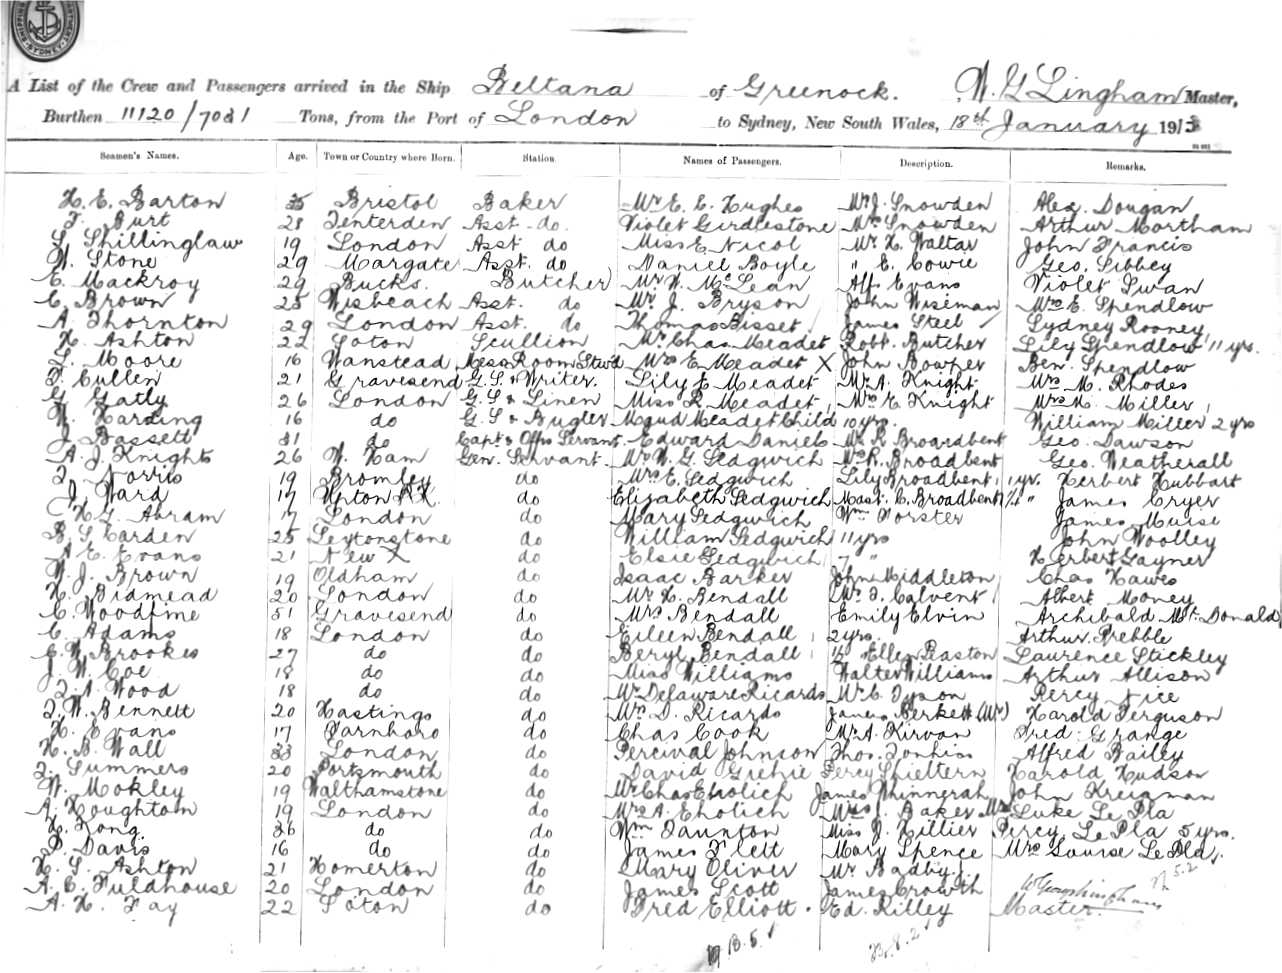 A List of the Crew and Passengers arrived in the Ship Beltana of Greenock. W. G Lingham Master,
Burthen 11120/7081 Tons, from the Port of London to Sydney, New South Wales, 18th January 1913
Seamen's Names. Age. Town or Country where Born. Station. Names of Passengers. Description. Remarks.
H. E. Barton 35 Bristol Baker Mr E. C. Hughes Mr J. Snowden Alex. Dougan
F. Burt 28 Tenterden Asst. do. Violet Girdlestone Mrs Snowden Arthur Mortham
G. Shillinglaw 19 London Asst do Miss E. Nicol Mr H. Waltar John Francis
W. Stone 29 Margate Asst. do Daniel Boyle " E. Cowie Geo. Sibbey
E. Mackroy 29 Bucks. Butcher Mr W. McLean Alf. Evans Violet Swan
C. Brown 25 Wisbeach Asst. do Mr J. Bryson John Wiseman Mrs E. Spendlow
A. Thornton 29 London Asst. do Thomas Bisset James Steel Sydney Rooney
H. Ashton 22 Soton Scullion Mr Chas Meadet Robt. Butcher Lily Spendlow 11 yrs.
S. Moore 16 Wanstead Mess Room Stwd Mrs E Meadet X John Bowper Ben. Spendlow
F. Cullen 21 Gravesend G. S. & Writer. Lily E Meadet Mr A. Knight Mrs M. Rhodes
G. Gatly 26 London G. S & Linen Miss R. Meadet Mrs E Knight Mrs H. Miller
W. Harding 16 do G. S & Bugler Maud Meadet Child 10 yrs. William Miller 2 yrs
J. Bassett 31 do Capt & Offrs Servant. Edward Daniels Mr R. Broardbent Geo. Dawson
A. J. Knights 26 W. Ham Gen. Servant. Mr W. G. Sedgwich Mrs R. Broadbent Geo. Weatherall
F. Norris 19 Bromley do Mrs E. Sedgwich Lily Broadbent 1 yr. Herbert Hubbart
J. Ward 17 Upton Pk. do Elizabeth Sedgwich Mast. C. Broadbent " James Cryer
H. G. Abram 17 London do Mary Sedgwich Wm Forster James Muise
B. S. Carden 25 Leytonstone do William Sedgwich 11 yrs John Woolley
A. E. Evans 21 New X do Elsie Sedgwich 7 " Herbert Gayner
W. J. Brown 19 Oldham do Isaac Barker John Middleton Chas Hawes
H. Bidmead 20 London do Mr H. Bendall Mr F. Calvent Albert Money
C. Woodfine 51 Gravesend do Mrs Bendall Emily Elvin Archibald Mc Donald
C. Adams 18 London do Eileen Bendall 2 yrs. Arthur Prebble
E. W. Brookes 27 do do Beryl Bendall ½ Ellen Peaston Laurence Stickley
J. W. Coe 18 do do Miss Williams Walter Williams Arthur Allison
F. A. Wood 18 do do Mr Delaware Ricards Mr C. Tyson Percy Nice
F. W. Bennett 20 Hastings do Mrs D. Ricards James Berkett (Mr) Harold Ferguson
H. Evans 17 Farnboro do Chas Cook Mr A. Kirvan Fred Grange
H. B. Wall 33 London do Percival Johnson Thos. Jonkiss Alfred Bailey
F. Summers 20 Portsmouth do David Grehie Percy Shieltern Harold Hudson
W. Mokley 19 Walthamstone do Mr Chas Eholich James Whinnerah John Kreigman
A. Houghton 19 London do Mrs A. Eholich Mrs J. Baker Mr Luke Le Pla
H. Long. 36 do do Wm Taunton Miss J. Hillier Percy Le Pla 5 yrs.
P. Davis 16 do do James Flett Mary Spence Mrs Louise Le Pla.
H. S. Ashton 21 Homerton do Mary Oliver Mr Badby J.
A. C. Fuldhouse 20 London do James Scott James Crowth
A. H. Fay 22 Soton do Fred Elliott. Ed. Rilley Master.